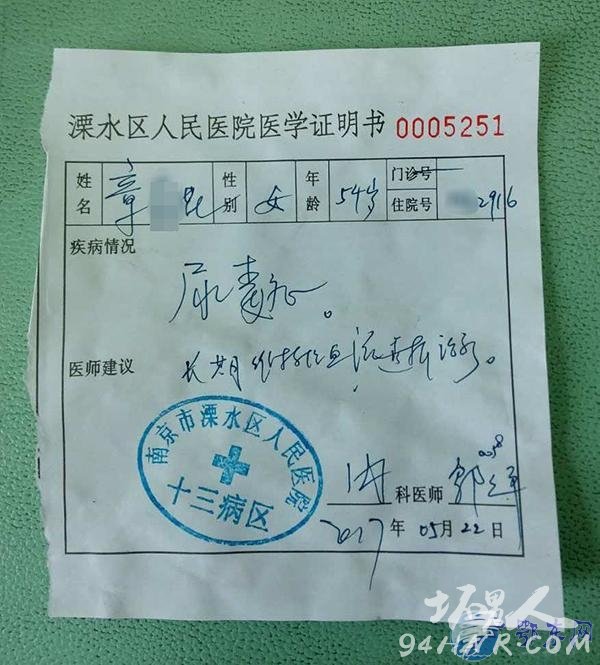 溧水区人民医院医学证明书 0005251
姓名 章 性别 女 年龄 54岁 门诊号 住院号 2916
疾病情况
尿毒症。
医师建议
长期维持性血液透析治疗。
南京市溧水区人民医院
十三病区
内 科医师 郭
2017年 05月 22日
坏男人
94HNR.COM